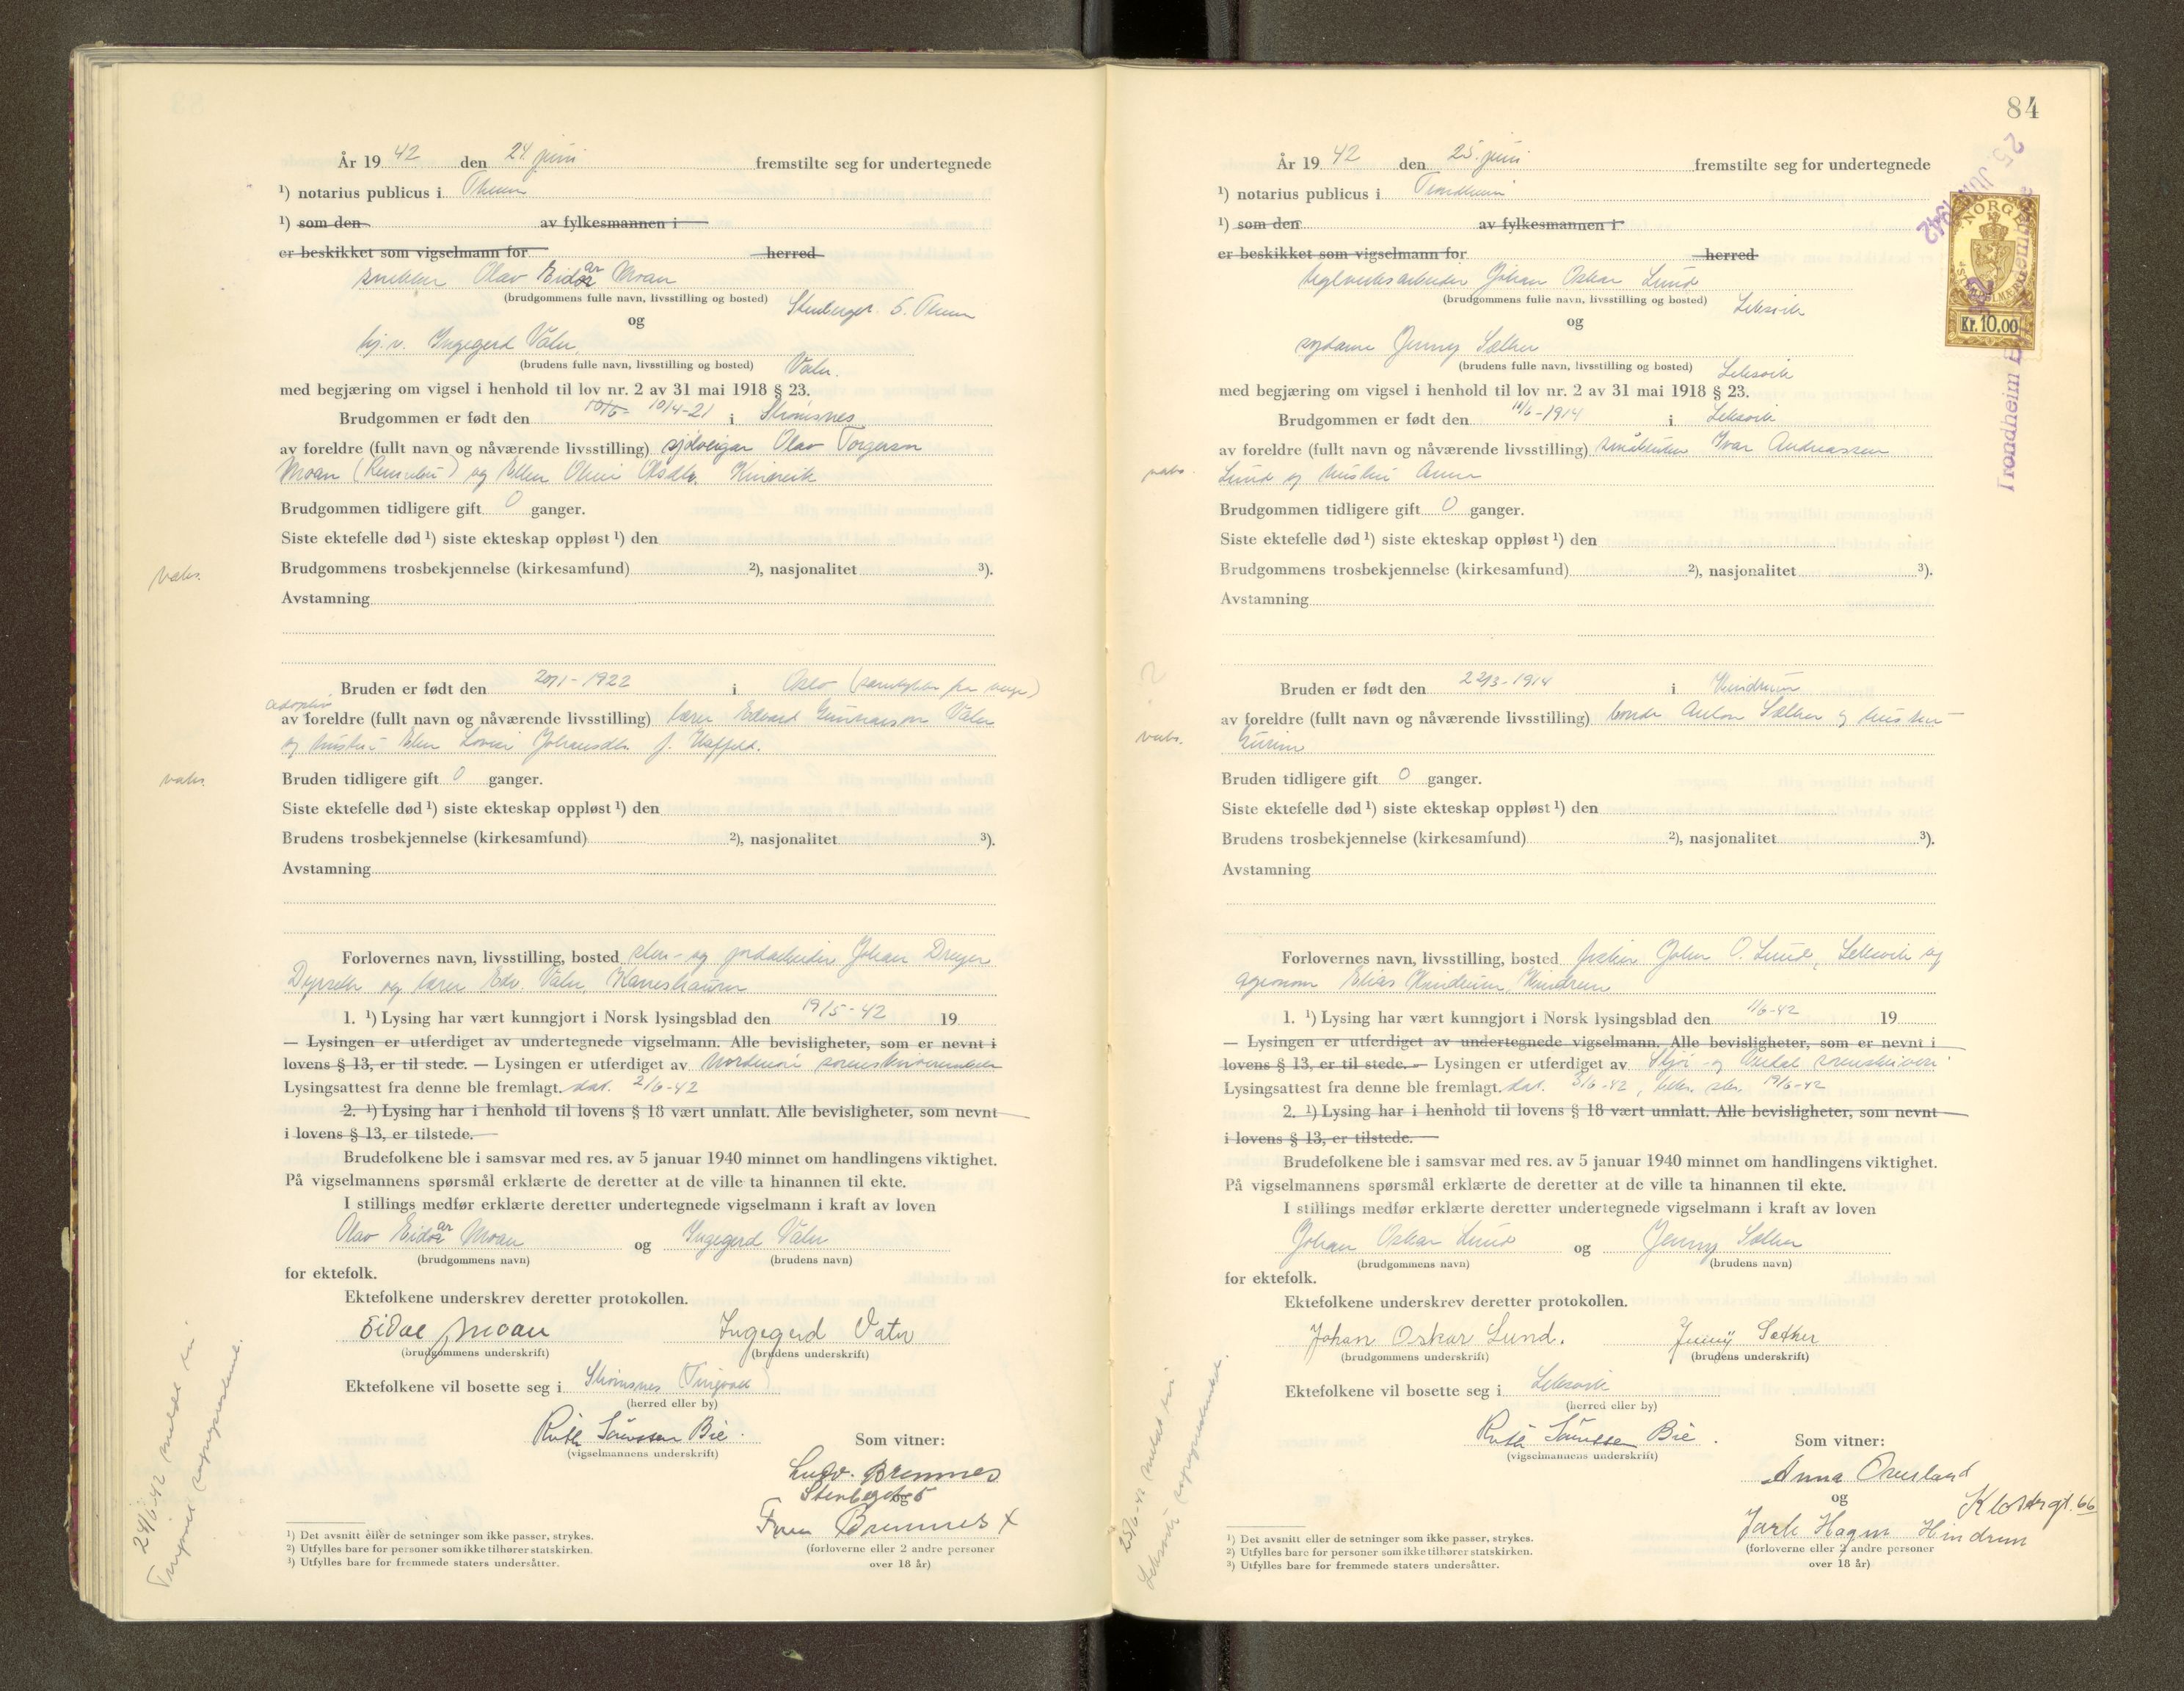 År 19 42 den 24 juni fremstilte seg for undertegnede
¹) notarius publicus i Theim
¹) som den av fylkesmannen i
er beskikket som vigselmann for herred
snekker Olav Eidar Moan
(brudgommens fulle navn, livsstilling og bosted) Stenberggt. 5. Theim
og
hj.v. Ingegerd Vatn
(brudens fulle navn, livsstilling og bosted) Vatn.
med begjæring om vigsel i henhold til lov nr. 2 av 31 mai 1918 § 23.
Brudgommen er født den 10/4-21 i Straumsnes
av foreldre (fullt navn og nåværende livsstilling) sjølveigar Olav Torgerson
Moan (Rennebu) og Ellen Olsdtr.
Brudgommen tidligere gift 0 ganger.
Siste ektefelle død ¹) siste ekteskap oppløst ¹) den
vabs. Brudgommens trosbekjennelse (kirkesamfund) ²), nasjonalitet ³).
Avstamning
Bruden er født den 20/1-1922 i Oslo
adoptiv
av foreldre (fullt navn og nåværende livsstilling) lærer Edvard Gunnarson Vatn
og hustru Johansdtr. f.
vabs. Bruden tidligere gift 0 ganger.
Siste ektefelle død ¹) siste ekteskap oppløst ¹) den
Brudens trosbekjennelse (kirkesamfund) ²), nasjonalitet ³).
Avstamning
Forlovernes navn, livsstilling, bosted sten- og jordarbeider Johan Dreyer
og lærer Edv. Vatn,
1. ¹) Lysing har vært kunngjort i Norsk lysingsblad den 19/5-42 19
— Lysingen er utferdiget av undertegnede vigselmann. Alle bevisligheter, som er nevnt i
lovens § 13, er til stede. — Lysingen er utferdiget av Nordmøre sorenskriverembete
Lysingsattest fra denne ble fremlagt. dat. 2/6-42
2. ¹) Lysing har i henhold til lovens § 18 vært unnlatt. Alle bevisligheter, som nevnt
i lovens § 13, er tilstede.
Brudefolkene ble i samsvar med res. av 5 januar 1940 minnet om handlingens viktighet.
På vigselmannens spørsmål erklærte de deretter at de ville ta hinannen til ekte.
I stillings medfør erklærte deretter undertegnede vigselmann i kraft av loven
Olav Eidar Moan og Ingegerd Vatn
(brudgommens navn) (brudens navn)
for ektefolk.
Ektefolkene underskrev deretter protokollen.
Eidar Moan Ingegerd Vatn
(brudgommens underskrift) (brudens underskrift)
Ektefolkene vil bosette seg i Straumsnes (Tingvoll)
(herred eller by)
Ruth Sørenssen Bie.
(vigselmannens underskrift) Som vitner:
Ludv. Bremnes
Stenberggt 5
og
Bremnes
(forloverne eller 2 andre personer
over 18 år)
24/6-42 meldt til
Tingvoll sogneprestemb.
¹) Det avsnitt eller de setninger som ikke passer, strykes.
²) Utfylles bare for personer som ikke tilhører statskirken.
³) Utfylles bare for fremmede staters undersåtter.
84
25 JUNI 1942
NORGE
Kr. 10.00
Trondheim
År 19 42 den 25. juni fremstilte seg for undertegnede
¹) notarius publicus i Trondheim
¹) som den av fylkesmannen i
er beskikket som vigselmann for herred
teglverksarbeider Johan Oskar Lund
(brudgommens fulle navn, livsstilling og bosted) Leksvik
og
sydame Jenny Sæther
(brudens fulle navn, livsstilling og bosted) Leksvik
med begjæring om vigsel i henhold til lov nr. 2 av 31 mai 1918 § 23.
Brudgommen er født den 11/6-1914 i Leksvik
av foreldre (fullt navn og nåværende livsstilling) småbruker Ivar Andreassen
vabs. Lund og hustru Anna
Brudgommen tidligere gift 0 ganger.
Siste ektefelle død ¹) siste ekteskap oppløst ¹) den
Brudgommens trosbekjennelse (kirkesamfund) ²), nasjonalitet ³).
Avstamning
Bruden er født den 22/3-1914 i Hindrum
av foreldre (fullt navn og nåværende livsstilling) bonde Anton Sæther og hustru
vabs. Gurine
Bruden tidligere gift 0 ganger.
Siste ektefelle død ¹) siste ekteskap oppløst ¹) den
Brudens trosbekjennelse (kirkesamfund) ²), nasjonalitet ³).
Avstamning
Forlovernes navn, livsstilling, bosted fisker Johan O. Lund, Leksvik og
agronom Elias Hindrum, Hindrum
1. ¹) Lysing har vært kunngjort i Norsk lysingsblad den 1/6-42 19
— Lysingen er utferdiget av undertegnede vigselmann. Alle bevisligheter, som er nevnt i
lovens § 13, er til stede. — Lysingen er utferdiget av Stjør- og Verdal sorenskriveri
Lysingsattest fra denne ble fremlagt. dat. 3/6-42, bekr. skr. 19/6-42
2. ¹) Lysing har i henhold til lovens § 18 vært unnlatt. Alle bevisligheter, som nevnt
i lovens § 13, er tilstede.
Brudefolkene ble i samsvar med res. av 5 januar 1940 minnet om handlingens viktighet.
På vigselmannens spørsmål erklærte de deretter at de ville ta hinannen til ekte.
I stillings medfør erklærte deretter undertegnede vigselmann i kraft av loven
Johan Oskar Lund og Jenny Sæther
(brudgommens navn) (brudens navn)
for ektefolk.
Ektefolkene underskrev deretter protokollen.
Johan Oskar Lund. Jenny Sæther
(brudgommens underskrift) (brudens underskrift)
Ektefolkene vil bosette seg i Leksvik
(herred eller by)
Ruth Sørenssen Bie.
(vigselmannens underskrift) Som vitner:
Anna Overland
og Klostergt. 66
Jarle Hagen Hindrum
(forloverne eller 2 andre personer
over 18 år)
25/6-42 meldt til
Leksvik sogneprestembede.
¹) Det avsnitt eller de setninger som ikke passer, strykes.
²) Utfylles bare for personer som ikke tilhører statskirken.
³) Utfylles bare for fremmede staters undersåtter.